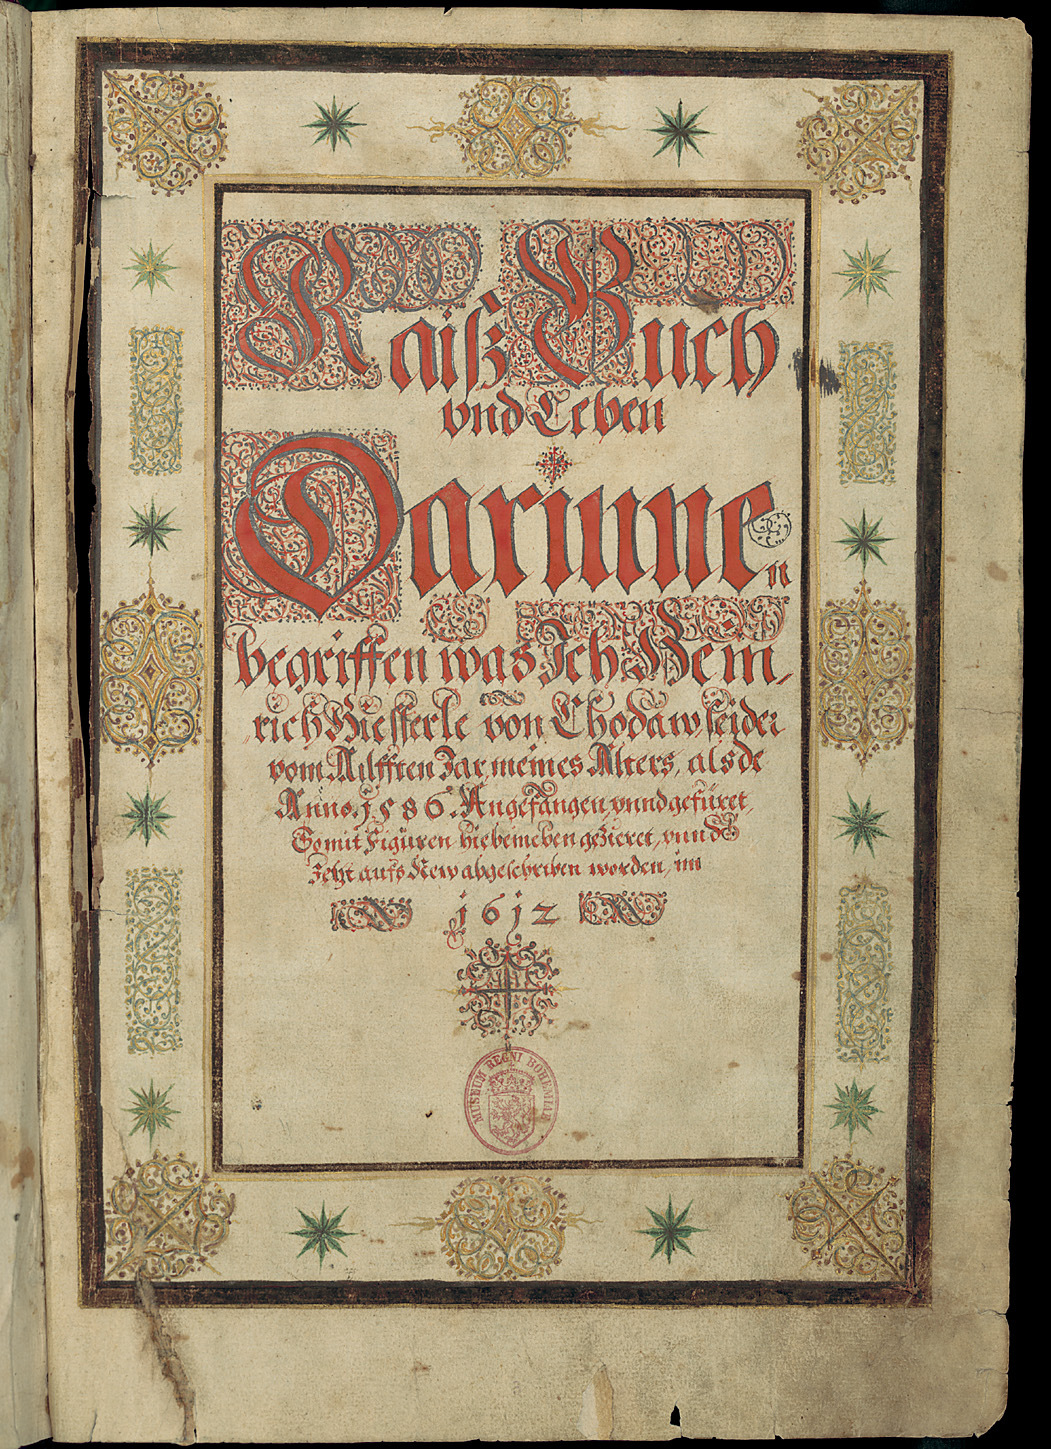 Raiß Buch
vnd Leben
Darinne
n
begriffen was Ich Hein,
rich Hiesserle von Chodaw seider
vom Ailfften Jar, meines Alters, als de
Anno. 1586. Angefangen, vnnd gefüret,
So mit Figuren hiebeineben gezieret, vnnd
Jetzt aufs New abgeschriben worden, im
1612
MUSEUM REGNI BOHEMIAE